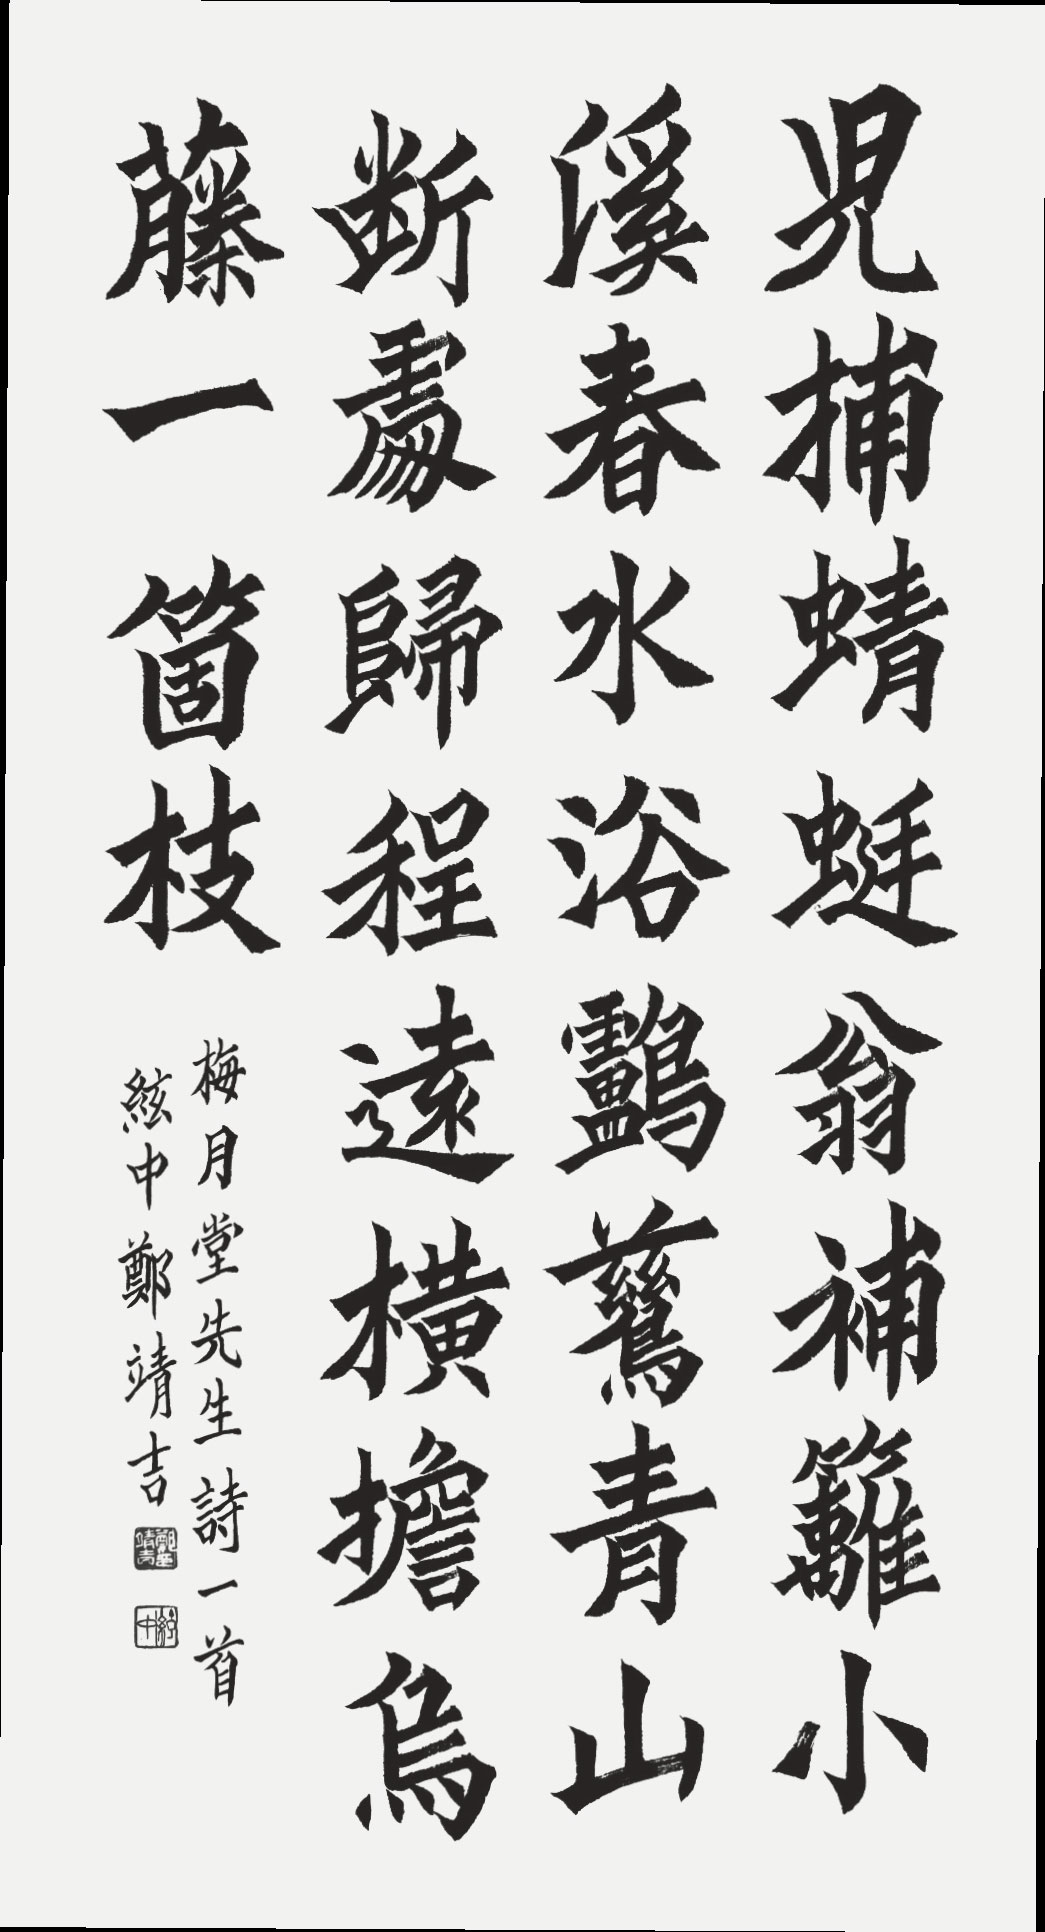 児捕蜻蜓翁補籬小
溪春水浴鸕鶿青山
断處歸程遠橫擔烏
藤一箇枝
梅月堂先生詩一首
絃中鄭靖吉